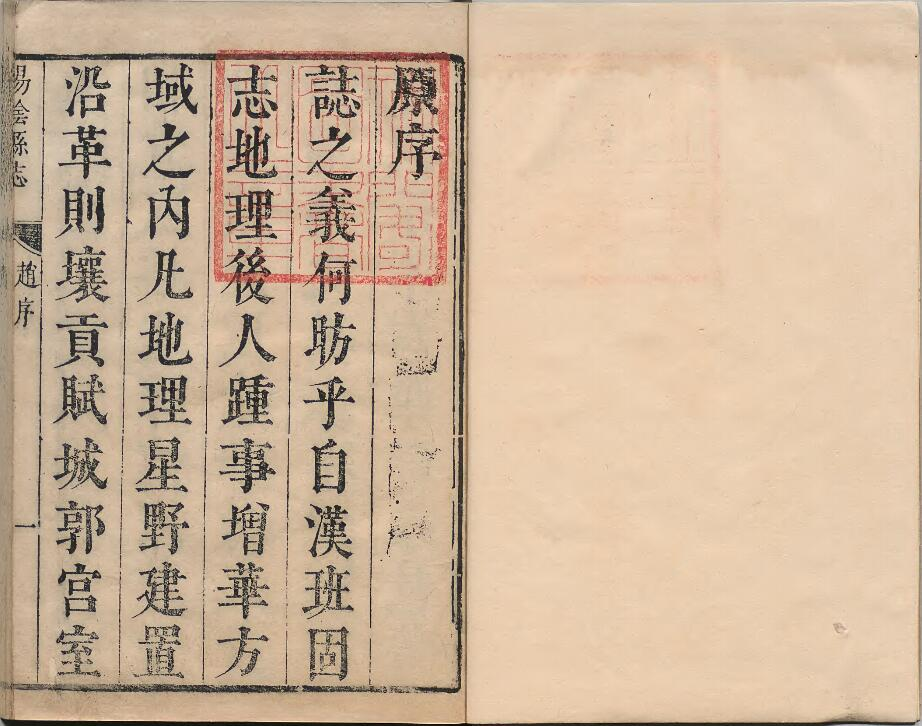 原序
誌之義何昉乎自漢班固
志地理後人踵事增華方
域之内凡地理星野建置
沿革則壤貢賦城郭宮室
湯陰縣志
趙序
一